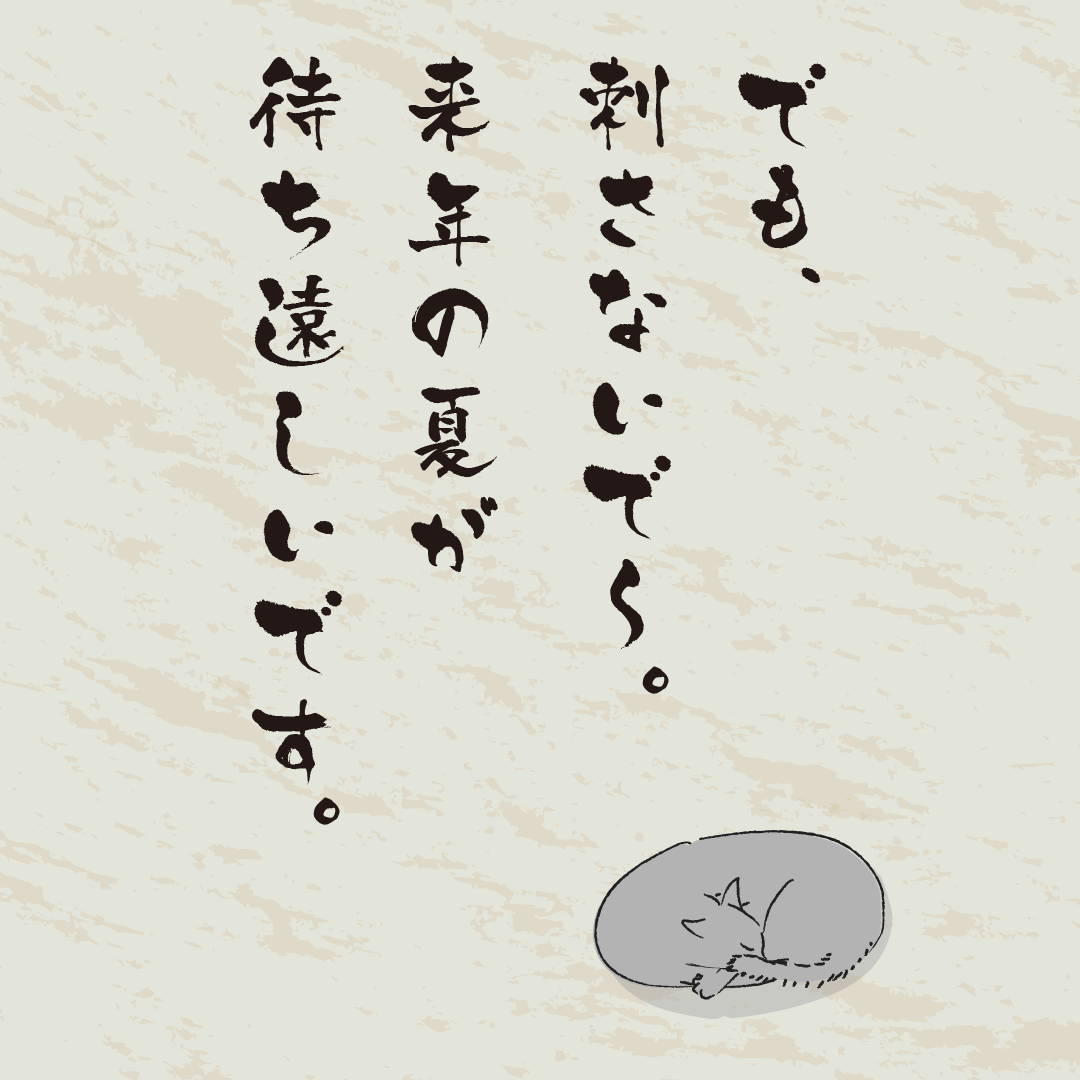 でも、
刺さないで〜。
来年の夏が
待ち遠しいです。